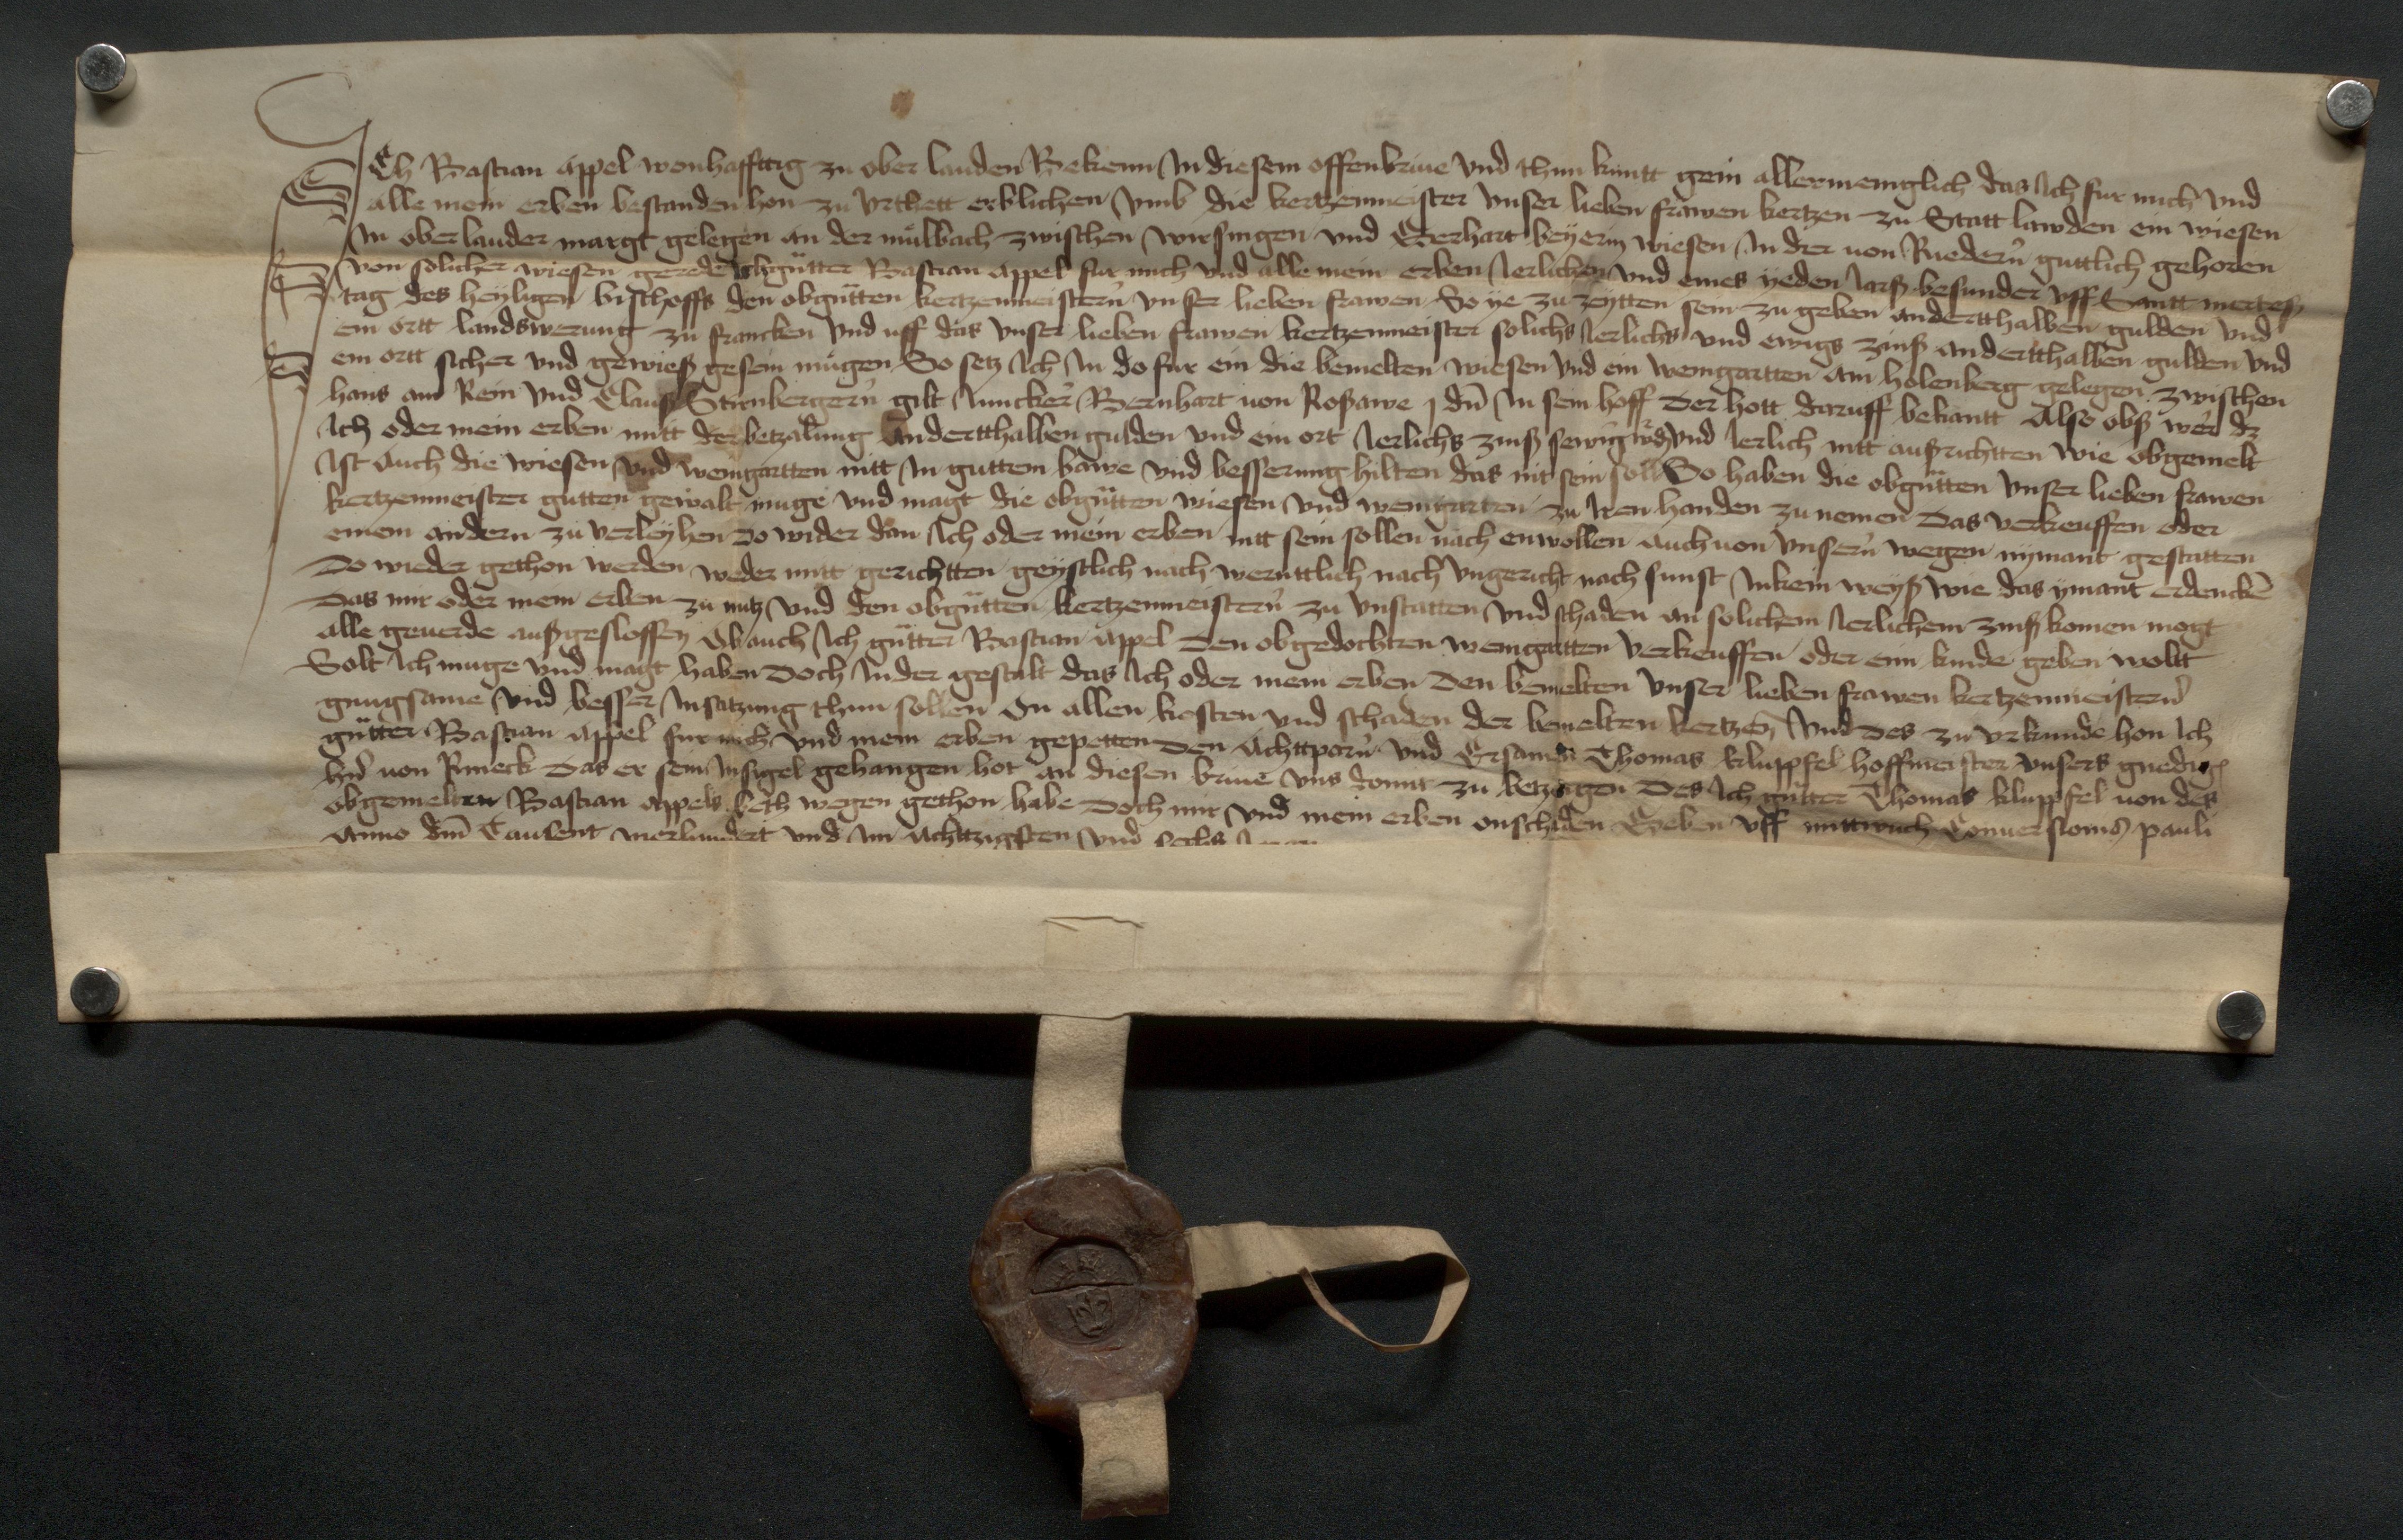 Ich Bastian Appel wonhafftig zu ober lauden Bekenn In diesem offenbriue vnd thun kuntt gein allermeniglich das Ich fur mich vnd
alle mein erben bestanden hon zu vrthett erblichen vmb die kertzenmeister vnser lieben frawen kertzen zu Statt lawden ein wiesen
In ober lauder margt gelegen an der mulbach zwischen wirsingen vnd Eberhart beyerin wiesen In der von Riedern guttlich gehoren
von solicher wiesen gerede Ichgutter Bastian Appel fur mich vnd alle mein erben Ierlichen vnd eines yeden Iarß besunder vff Santt mertes
tag des heyligen bischoffs den obgutten kertzenmeistern vnser lieben frawen So ye zu zeytten sein zu geben andertthalben gulden vnd
ein ortt landswerung zu francken vnd uff das vnser lieben frawen kertzenmeister solichs Ierlichs vnd ewigs zinß andertthalben gulden vnd
ein ortt sicher vnd gewieß gesein mugen So setz Ich In do fur ein die bemelten wiesen vnd ein weingartten am holenberg gelegen zwischen
hans am Rein vnd Clauß Stirnbergern gilt Iuncker Bernhart von Roßawe j dn In sein hoff Der hott daruff bekantt Also obß wer dz
Ich oder mein erben mitt der betzalung andertthalben gulden vnd ein ort Ierlichs zinß sewmig vnd Ierlich nitt außrichtten wie obgemelt
Ist Auch die wiesen vnd weingartten nitt In guttem bawe vnd besserung hilten das nit sein soll So haben die obgutten vnser lieben frawen
kertzenmeister gutten gewalt muge vnd magt die obgutten wiesen vnd weingarten zu Iren handen zu nemen Das verkeuffen oder
einem andern zu verleyhen Do wider dan Ich oder mein erben nitt sein sollen nach enwollen auch von vnsern wegen nymant gestatten
Do wieder gethon werden weder mitt gerichtten geystlich nach wernttlich nach vngericht nach sunst Inkein weyß wie das ymant erdencken
Das mir oder mein erben zu nutz vnd den obgutten kertzenmeistern zu vnstatten vnd schaden an solichem Ierlichem zinß komen mogt
alle geuerde außgeslossen Ob auch Ich gutter Bastian Appel Den obgedochten weingartten verkeuffen oder eim kinde geben woltt
Solt Ich muge vnd magt haben Doch In der gestalt das Ich oder mein erben Den bemelten vnser lieben frawen kertzenmeistern
gnugsame vnd besser Insatzung thun sollen On allen kosten vnd schaden der bemelten kertzen vnd Des zu vrkunde hon Ich
gutter Bastian Appel fur mich vnd mein erben gepetten Den Achttparn vnd Ersamen Thomas kluppfel hoffmeister vnsers gnedigen
hern von Rineck Das er sein Insigel gehangen hot an diesen briue vns domit zu betzeugen Des Ich gutter Thomas kluppfel von des
obgemelten Bastian Appels beth wegen gethon habe Doch mir vnd mein erben onschaden Geben vff mittwuch Conuersionis pauli
Anno dm Tausent vierhundert vnd Im Achttzigsten vnd sechs